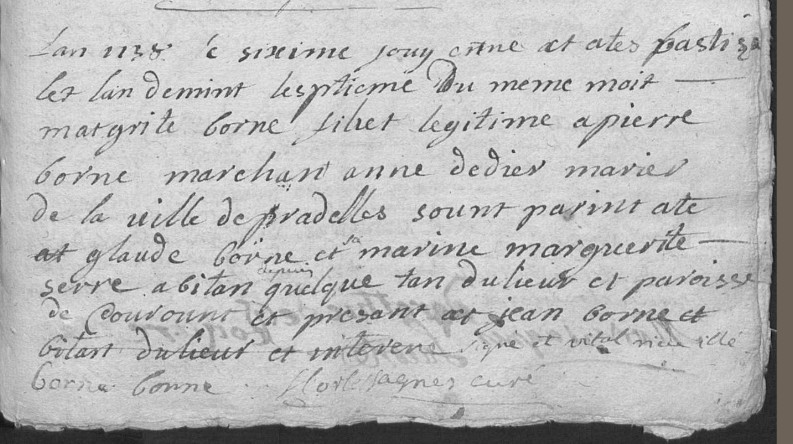 Lan 1738 le sixieme jouy enne at ates bastisa
let lan demint lesptieme Du meme moit
matgrite borne filiet legitime apierre
borne marchant anne dedier marier
de la ville de pradelles sount parint ate
at glaude borne et sa marine marguerite
serre abitan depuis quelque tan du lieur et paroisse
de Couroune et presant at jean borne et
bitant du lieur et interene signé et vital
borne borne curé